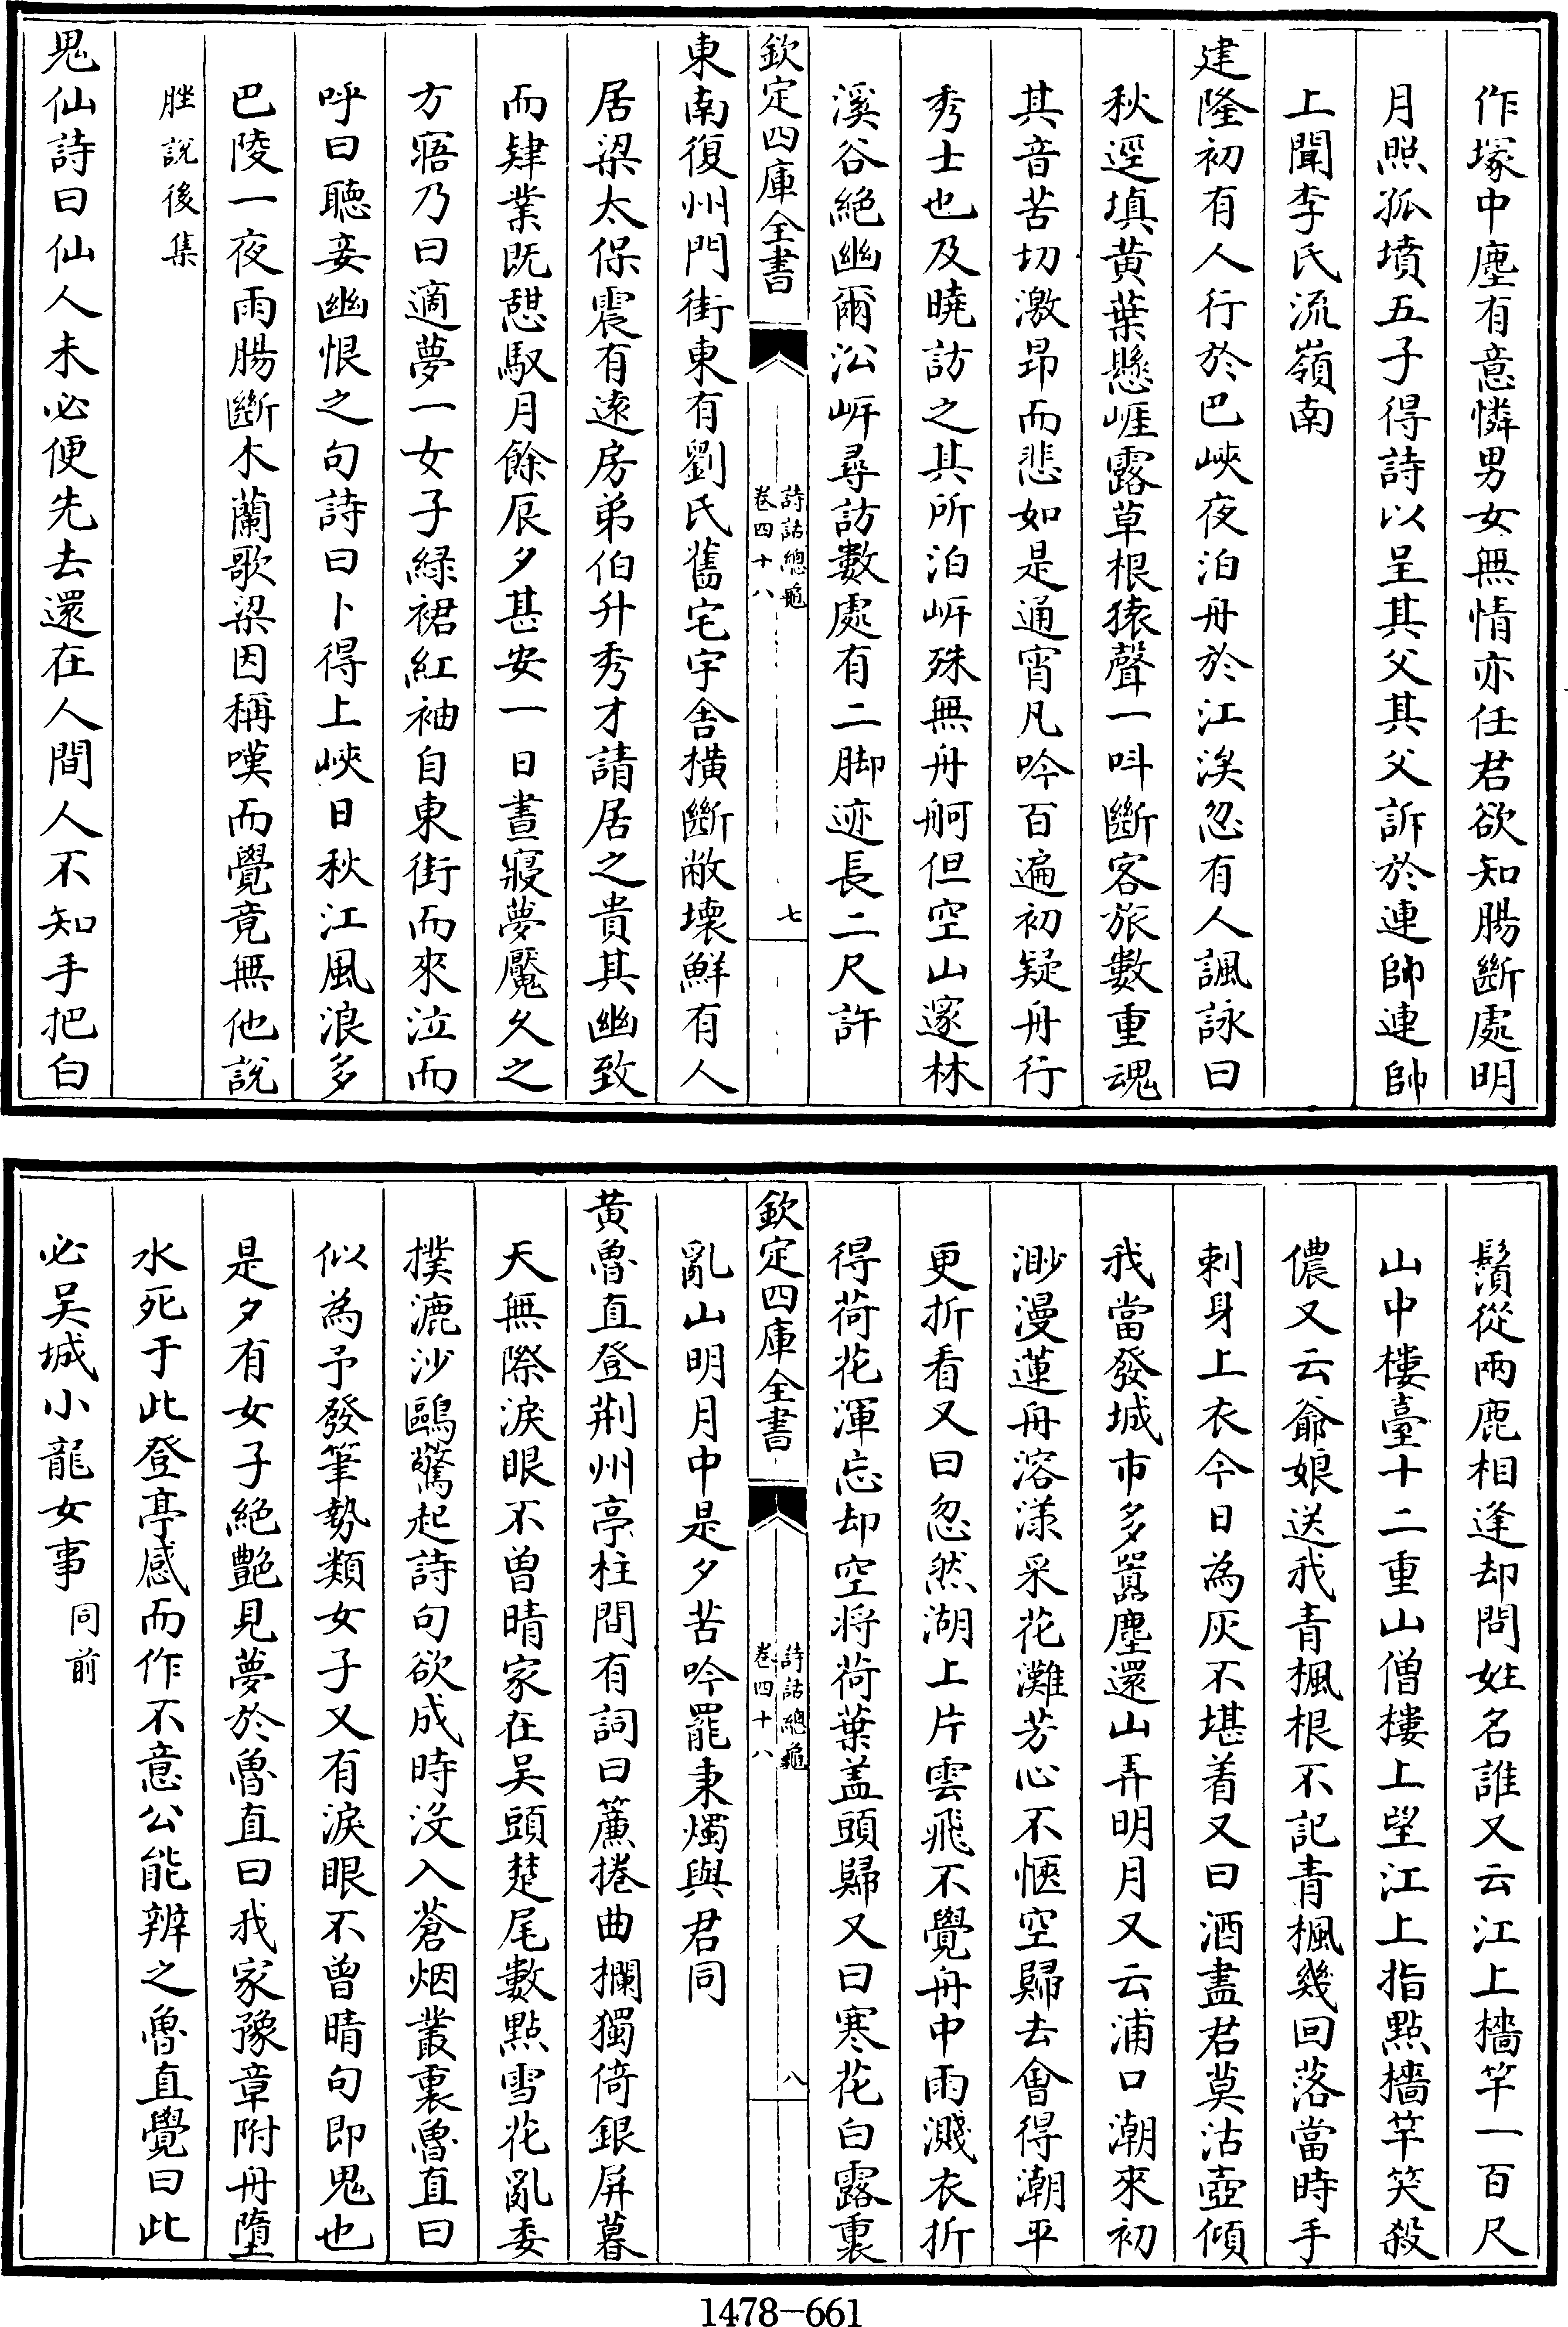 作塚中塵有意憐男女無情亦任君欲知腸斷處明
月照孤墳五子得詩以呈其父其父訴於連帥連帥
上聞李氏流嶺南
建隆初有人行於巴峽夜泊舟於江涘忽有人諷詠曰
秋逕填黄葉懸崕露草根猿聲一呌斷客旅數重魂
其音苦切激昻而悲如是通宵凡吟百遍初疑舟行
秀士也及曉訪之其所泊岍殊無舟舸但空山邃林
溪谷絶幽爾㳂岍尋訪數處有二脚迹長二尺許
欽定四庫全書
詩話總龜
卷四十八
七
東南復州門街東有劉氏舊宅宇舍橫斷敝壊鮮有人
居梁太保震有逺房弟伯升秀才請居之貴其幽致
而肄業既憇馭月餘辰夕甚安一日晝寢夢魘久之
方寤乃曰適夢一女子緑裙紅袖自東街而來泣而
呼曰聽妾幽恨之句詩曰卜得上峽日秋江風浪多
巴陵一夜雨腸斷木蘭歌梁因稱嘆而覺竟無他說
脞說後集
鬼仙詩曰仙人未必便先去還在人間人不知手把白
鬚從兩鹿相逢却問姓名誰又云江上檣竿一百尺
山中樓臺十二重山僧樓上望江上指點檣竿笑殺
儂又云爺娘送我青楓根不記青楓幾回落當時手
刺身上衣今日為灰不堪着又曰酒盡君莫沽壺傾
我當發城市多囂塵還山弄明月又云浦口潮來初
渺漫蓮舟溶漾采花灘芳心不愜空歸去會得潮平
更折看又曰忽然湖上片雲飛不覺舟中雨濺衣折
得荷花渾忘却空將荷葉盖頭歸又曰寒花白露裏
欽定四庫全書
詩話總龜
卷四十八
八
亂山明月中是夕苦吟罷秉燭與君同
黄魯直登荆州亭柱間有詞曰簾捲曲欄獨倚銀屏暮
天無際淚眼不曽晴家在吴頭楚尾數點雪花亂委
撲漉沙鷗驚起詩句欲成時沒入蒼烟叢裏魯直曰
似為予發筆勢類女子又有淚眼不曽晴句即鬼也
是夕有女子絶艶見夢於魯直曰我家豫章附舟墮
水死于此登亭感而作不意公能辨之魯直覺曰此
必吴城小龍女事 同前
1478-661